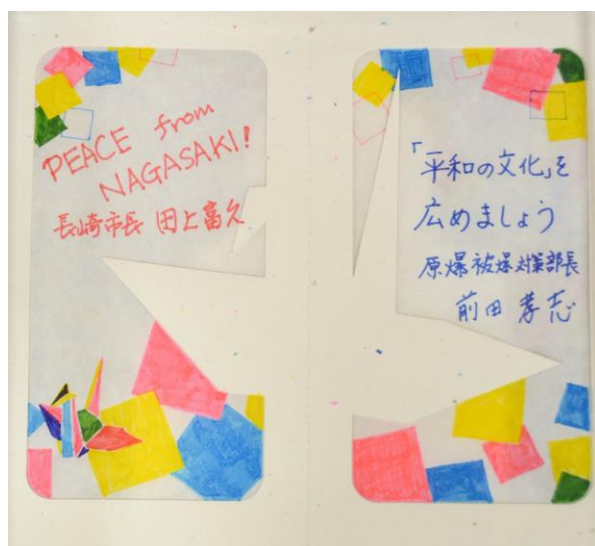 PEACE from
NAGASAKI!
長崎市長 田上富久
「平和の文化」を
広めましょう
原爆被爆対策部長
前田 孝志